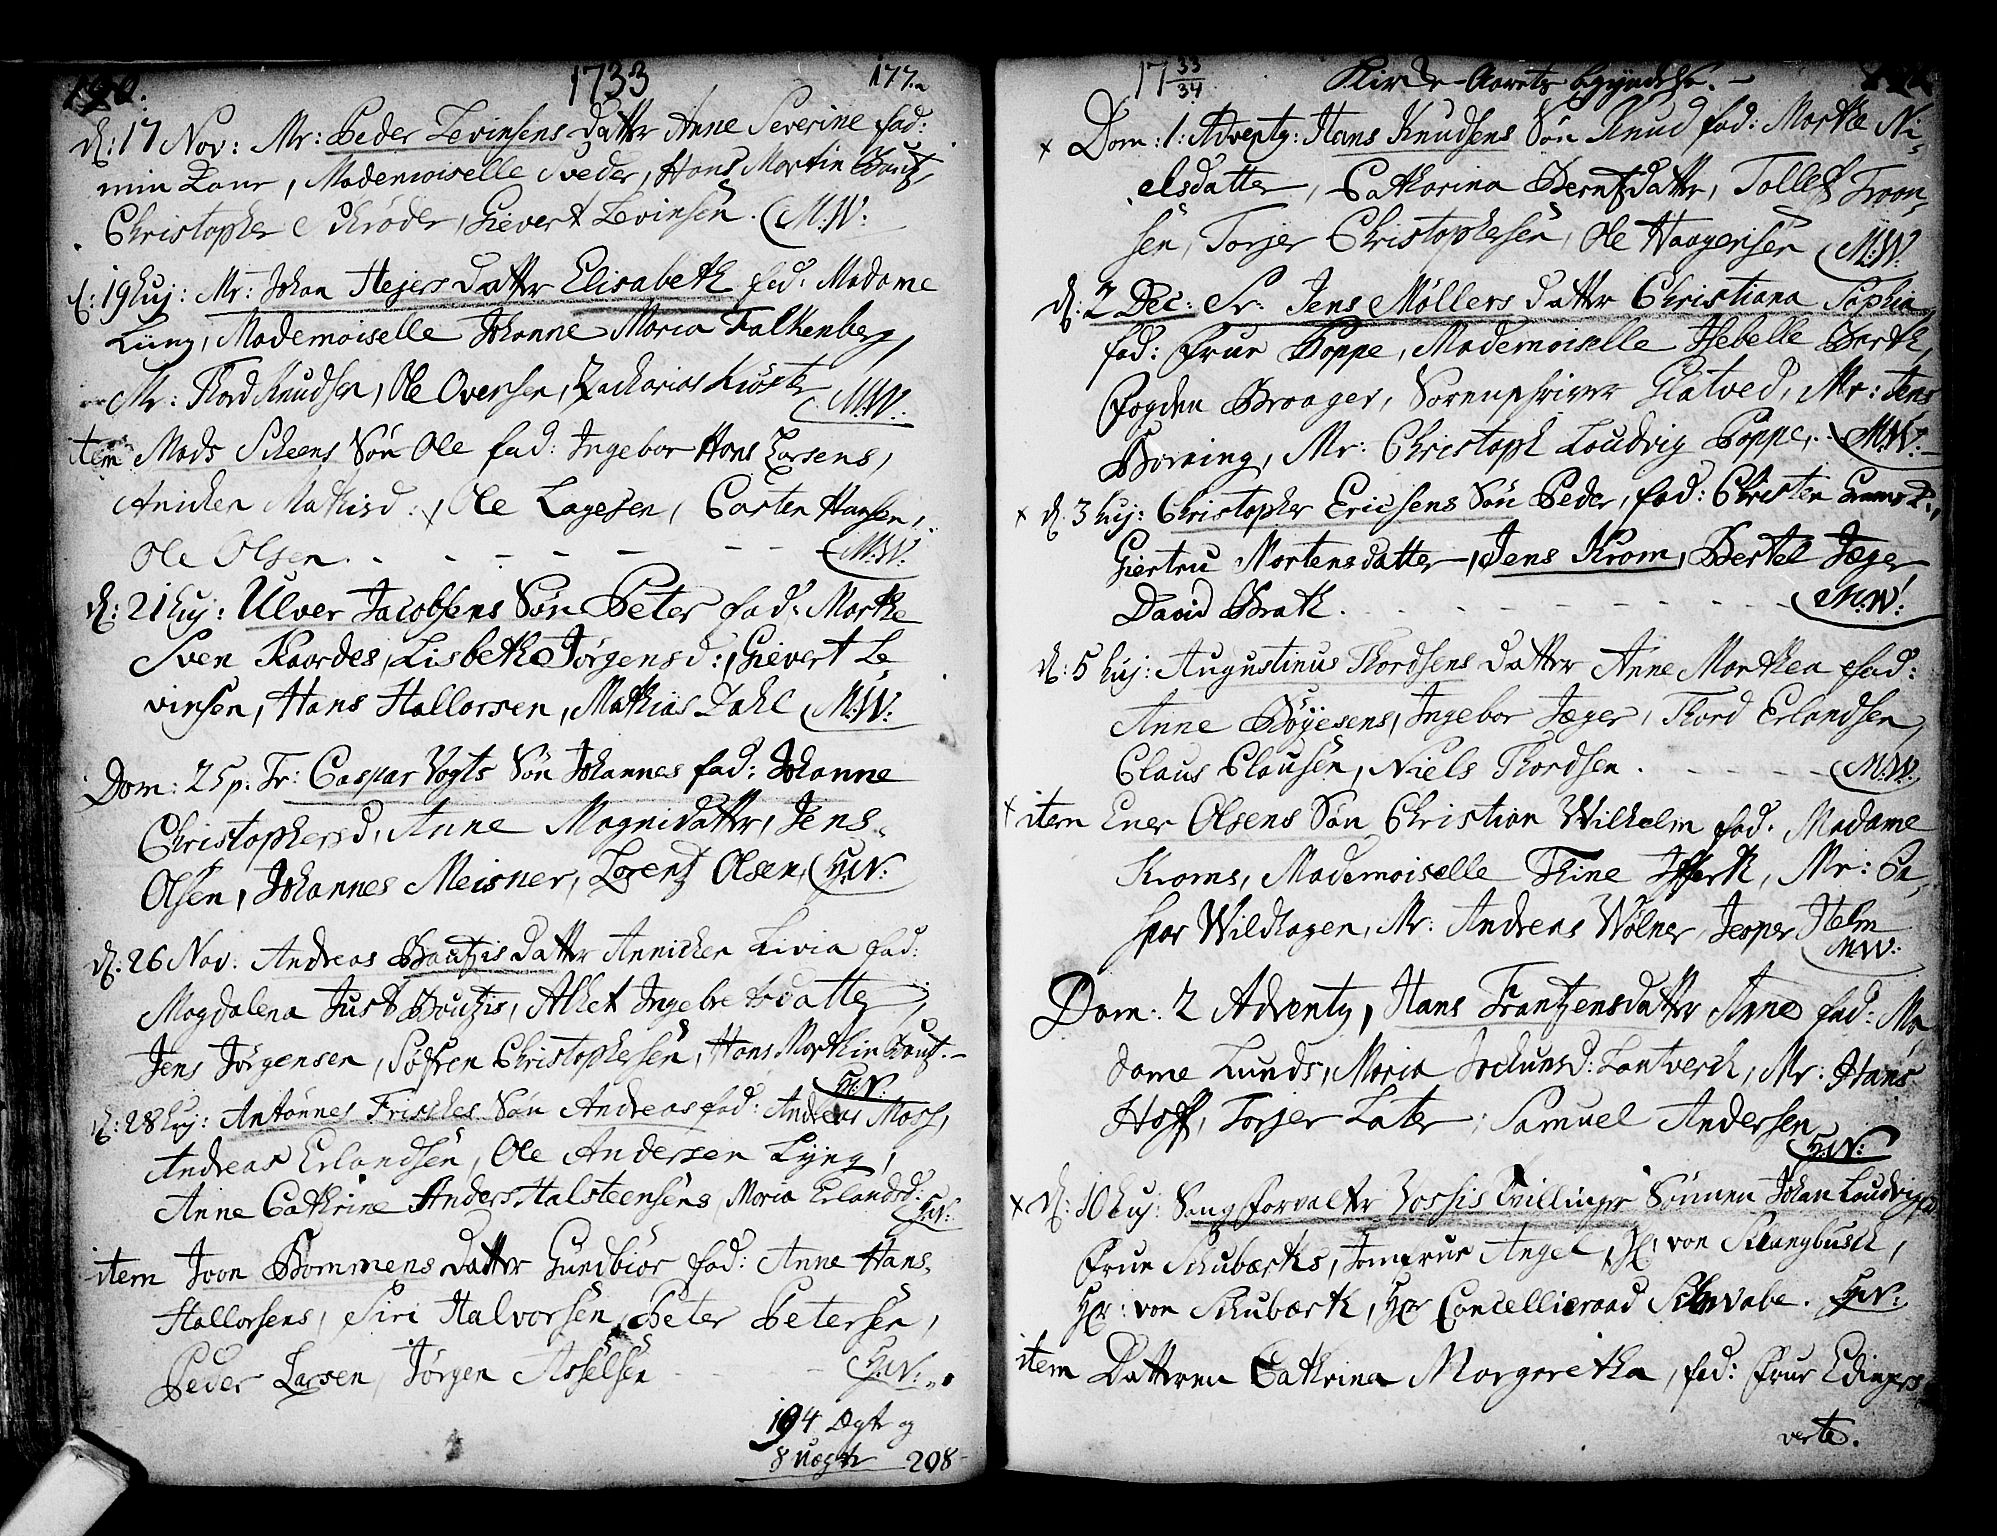 190. 1733 177.
d: 17 Nov: Mr: Peder Levinsens datter Anne Severine fad:
min Kone, Mademoiselle Sveder, Hans Mortin
Christopher Schrøder, Gievert Levinsen. M.W:
d: 19 huj: Mr: Johan Hejers datter Elisabeth fad: Madame
Lung, Mademoiselle Johanne Maria Falkenberg,
Mr: Thord Knudsen, Ole Oversen, Zacharias M.W:
item Mads Scheens Søn Ole fad: Ingebor Hans Larsens,
Anichen Mathisd:, Ole Lagesen, Carsten Hansen,
Ole Olsen. - - - - - M.W:
d: 21 huj: Ulver Jacobsens Søn Peter fad: Marthe
Sven Kaardes, Lisbeth Jørgensd:, Gievert Le
vinsen, Hans Hallorsen, Mathias Dahl M.W:
Dom: 25 p. Tr: Caspar Vogts Søn Johannes fad: Johanne
Christophersd, Anne Magnidatter, Jens
Olsen, Johannes Meisner, Lorentz Olsen, H.N:
d: 26 Nov: Andreas Bautzis datter Annichen Livia fad:
Magdalena Just Boutzis, Alhet Ingebretsdatter
Jens Jørgensen, Søfren Christophersen, Hans Morthin Bautz. -
H.N:
d: 28 huj: Antonnes Frisches Søn Andreas fad: Andreas Mosh,
Andreas Erlandsen, Ole Andersen Lyng,
Anne Cathrine Anders Halsteensens, Maria Erlandsd: H.N:
item Joon Bommens datter Gundbiør fad: Anne Hans
Hallorsens, Siri Halvorsen, Peter Petersen,
Peder Larsen, Jørgen Asselsen - - H.N:
194 Ægte og
8 uægte 208
17 33/34 Kirke-Aarets begyndelse. -
+ Dom: 1: Adventy: Hans Knudsens Søn Knud fad: Marthe Ni-
elsdatter, Catharina Berntzdatter, Tollef Troon-
sen, Torjer Christophersen, Ole Haagensen M.W:
d: 2 Dec: Sr. Jens Møllers datter Christiana Sophia
fad: Frue Poppe, Mademoiselle Hebelle Barth,
Fogden Braager, Sorenskriver Giatved, Mr: Jens
Borning, Mr: Christoph Loudvig Poppe, M.W:
+ d: 3 huj: Christopher Ericsens Søn Peder, fad: Christen
Giertru Mortensdatter, Jens Krom, Bertel Jæger
David Brath. - - - - M.W:
d: 5 huj: Augustinus Thordsens datter Anne Marthea fad:
Anne Bøyesens, Ingebor Jæger, Thord Erlandsen
Claus Clausen, Niels Thordsen. - - - M.W:
+ item Ener Olsens Søn Christian Wilhelm fad. Madame
Kroms, Mademoiselle Thine, Mr: Ca-
spar Wildhagen, Mr: Andreas Wølner, Jesper Helm
M.W:
Dom: 2 Adventy, Hans Frantzens datter Anne fad: Ma-
dame Lunds, Maria Jochumsd: Lantverch, Mr: Hans
Hoff, Torjer Later, Samuel Andersen
H.N:
+ d: 10 huj: Saugforvalter Vossis Tvillinger Sønnen Johan Loudvig
Frue Schubarths, Jomfrue Angel, Hr: von Stangbusch,
Hr: von Schubarth, Hr Cancelliraad Schvabe. H.N:
item Datteren Cathrina Margaretha, fad: Frue Edingers
verte.